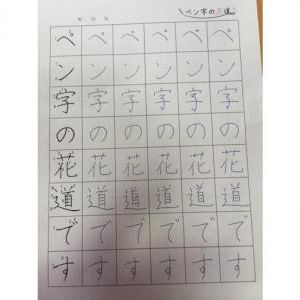 ペン字の花道
年 月 日
ペペペペペペ
ンンンンンン
字字字字字字
のののののの
花花花花花花
道道道道道道
でででででで
すすすすすす